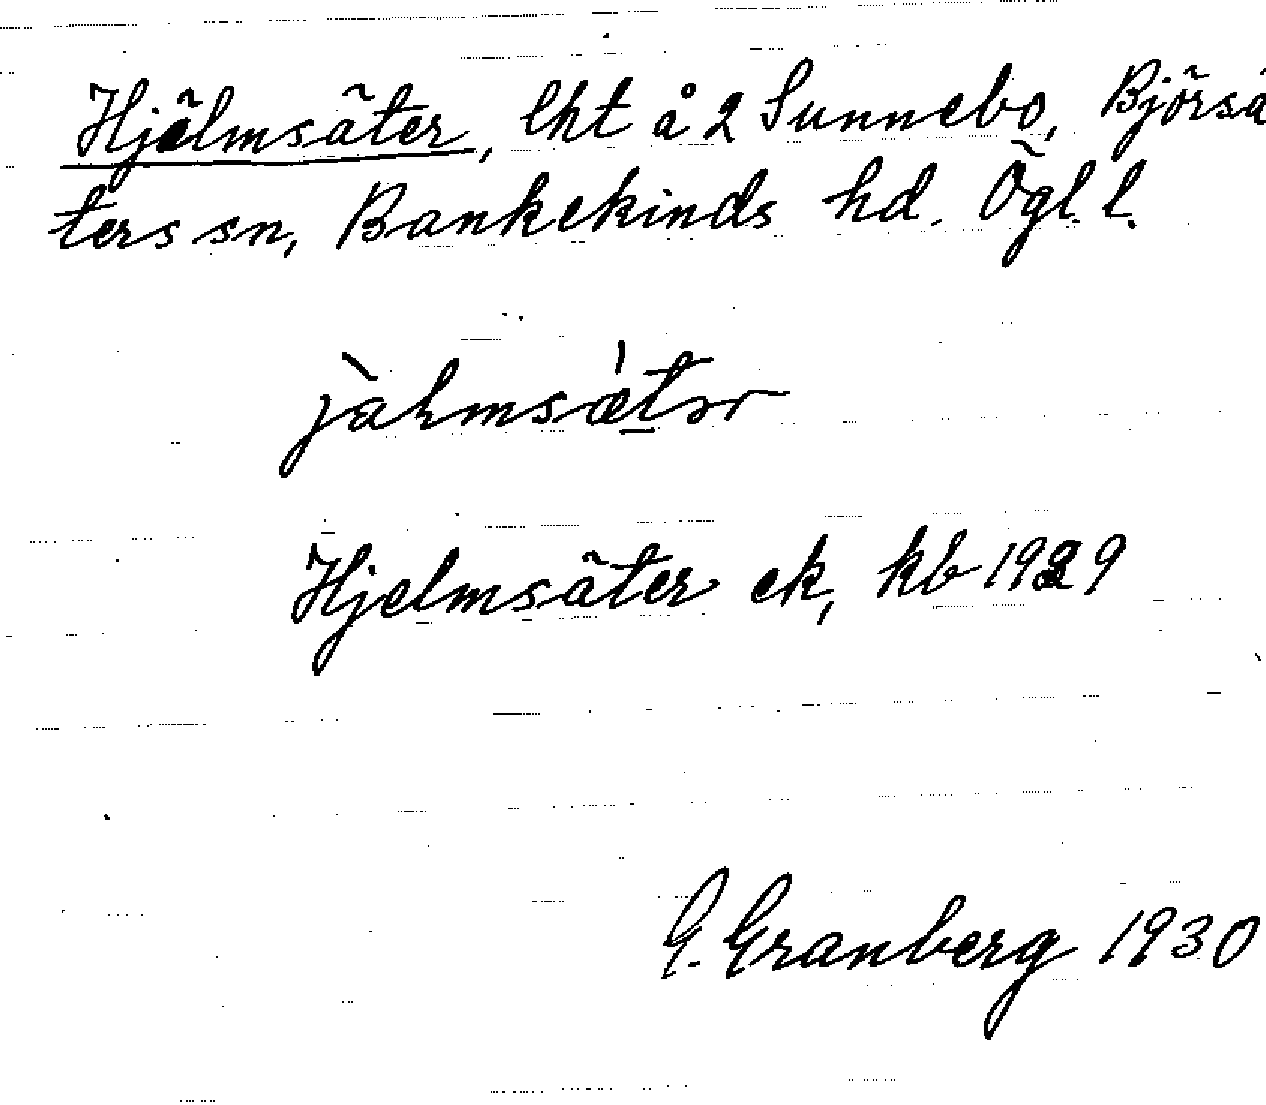 Hjälmsäter, lht å 2 Sunnebo, Björsä
ters sn, Bankekinds hd. Ögl. l.
jàlmsǽtər
Hjelmsäter ek, kb 1929
G. Granberg 1930